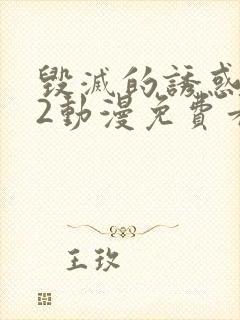 毀滅的誘惑
2動漫免費
王玫